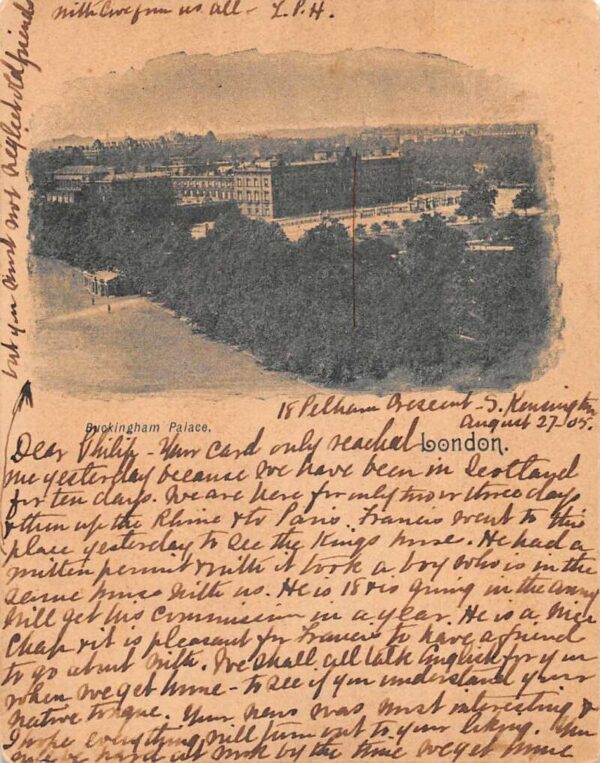 Buckingham Palace.
London.
18 Pelham Crescent - S. Kensington
August 27 05.
Dear Philip - Your card only reached
me yesterday because we have been in Scotland
for ten days. We are here for only two or three days
& then up the Rhine & to Paris. Francis went to this
place yesterday to see the Kings house. He had a
written permit & with it took a boy who is in the
same house with us. He is 18 & is going in the army
will get his commission in a year. He is a nice
chap & it is pleasant for Francis to have a friend
to go about with. We shall all talk English for you
when we get home - to see if you understand your
native tongue. Your news was most interesting &
I hope everything will turn out to your liking. You
will be hard at work by the time we get home
but you must not neglect old friends
with love from us all - L.P.H.